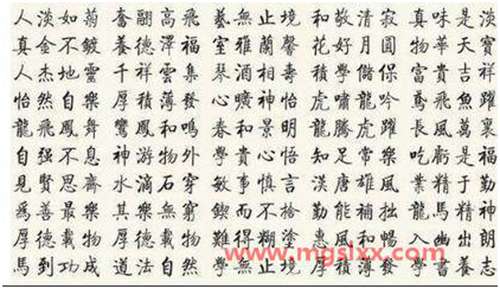 人淡如菊 奮翮高飛 藝無止境 和敬清寂 真味是淡
真金不鍍 養德澤福 室雅蘭馨 花好月圓 物華天寶
人杰地靈 千祥雲集 琴 相壽 積學儲 富貴吉祥
怡然自樂 厚積薄發 曠神怡 虎嘯龍吟 鳶飛魚躍
龍飛鳳舞 鸞鳳和鳴 春和景明 龍騰虎躍 長風萬裏
自强不息 神游物外 和貴心悟 知足常樂 吃虧是福
見賢思齋 水滴石穿 敏事慎言 漢唐雄風 業精于勤
爲善最樂 其樂無窮 鍥而不捨 勤能補拙 龍馬精神
厚德載物 厚德載物 難得糊塗 惠風和暢 入幽出朗
馬到功成 道法自然 學無止境 厚積薄發 學書養志
www.mgsixx.com